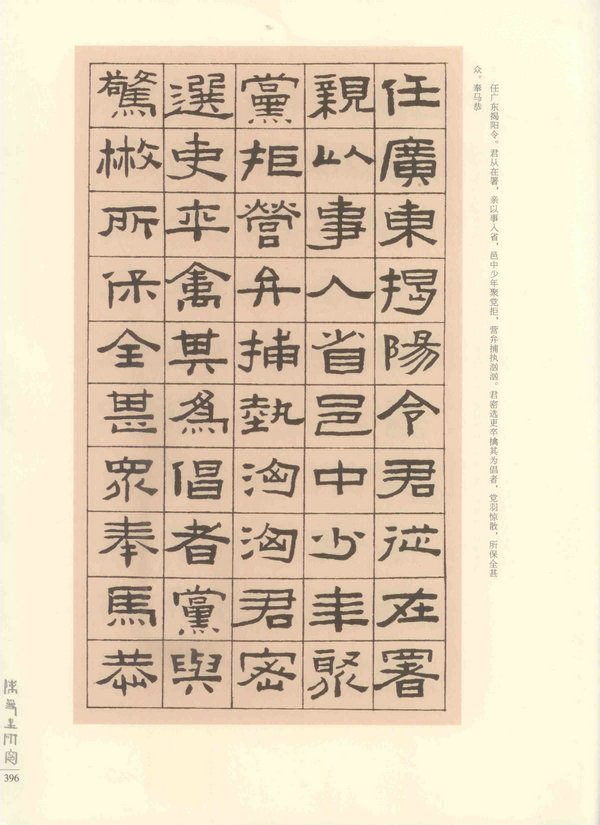 任廣東揭陽令君從在署
親以事入省邑中少年聚
黨拒營弁捕執洶洶君密
選吏卒禽其為倡者黨與
驚散所保全甚眾奉馬恭
任广东揭阳令。君从在署，亲以事入省，邑中少年聚党拒，营弁捕执汹汹。君密选更卒擒其为倡者，党羽惊散，所保全甚
众。奉马恭
396